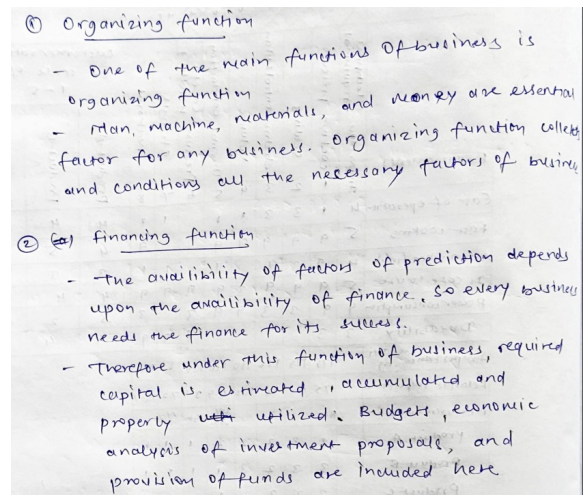 ① Organizing function
- One of the main functions of business is
organizing function
- Man, machine, materials, and money are essential
factor for any business. Organizing function collects
and conditions all the necessary factors of business
② financing function
- the availibility of factors of prediction depends
upon the availibility of finance. So every business
needs the finance for its success.
- Therefore under this function of business, required
capital is estimated, accumulated and
properly utilized. Budgets, economic
analysis of investment proposals, and
provision of funds are included here